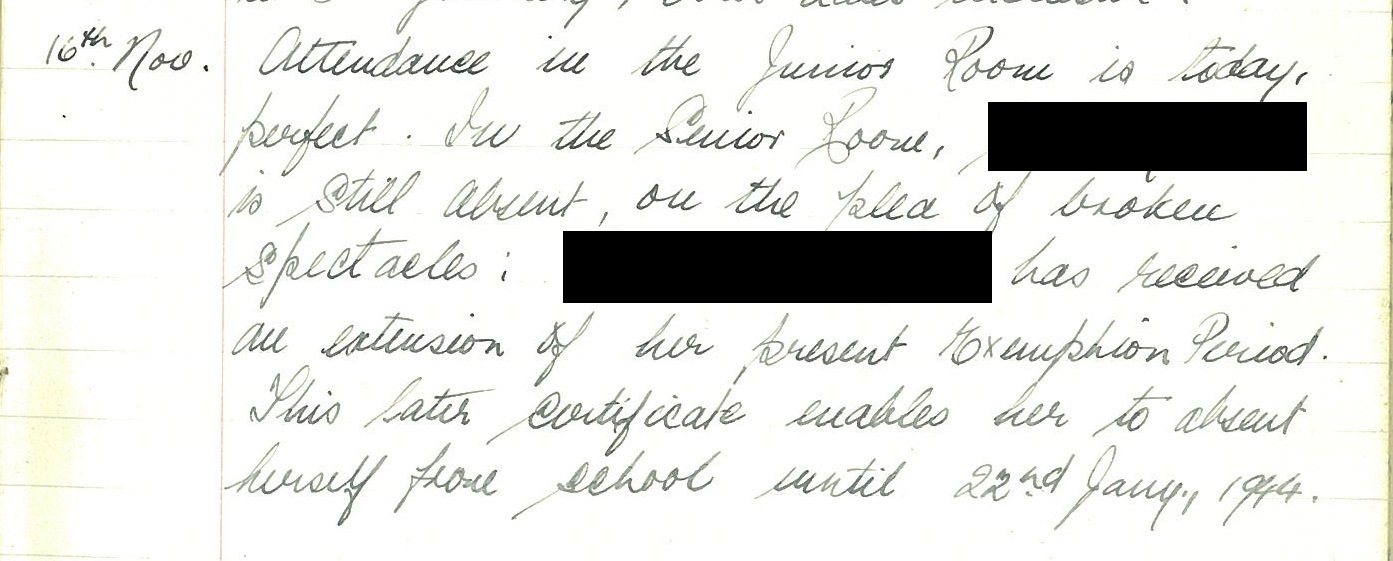 16th. Nov. Attendance in the Junior Room is today,
perfect. In the Senior Room,
is still absent, on the plea of broken
spectacles; has received
an extension of her present Exemption Period.
This later certificate enables her to absent
herself from school until 22nd Jany., 1944.